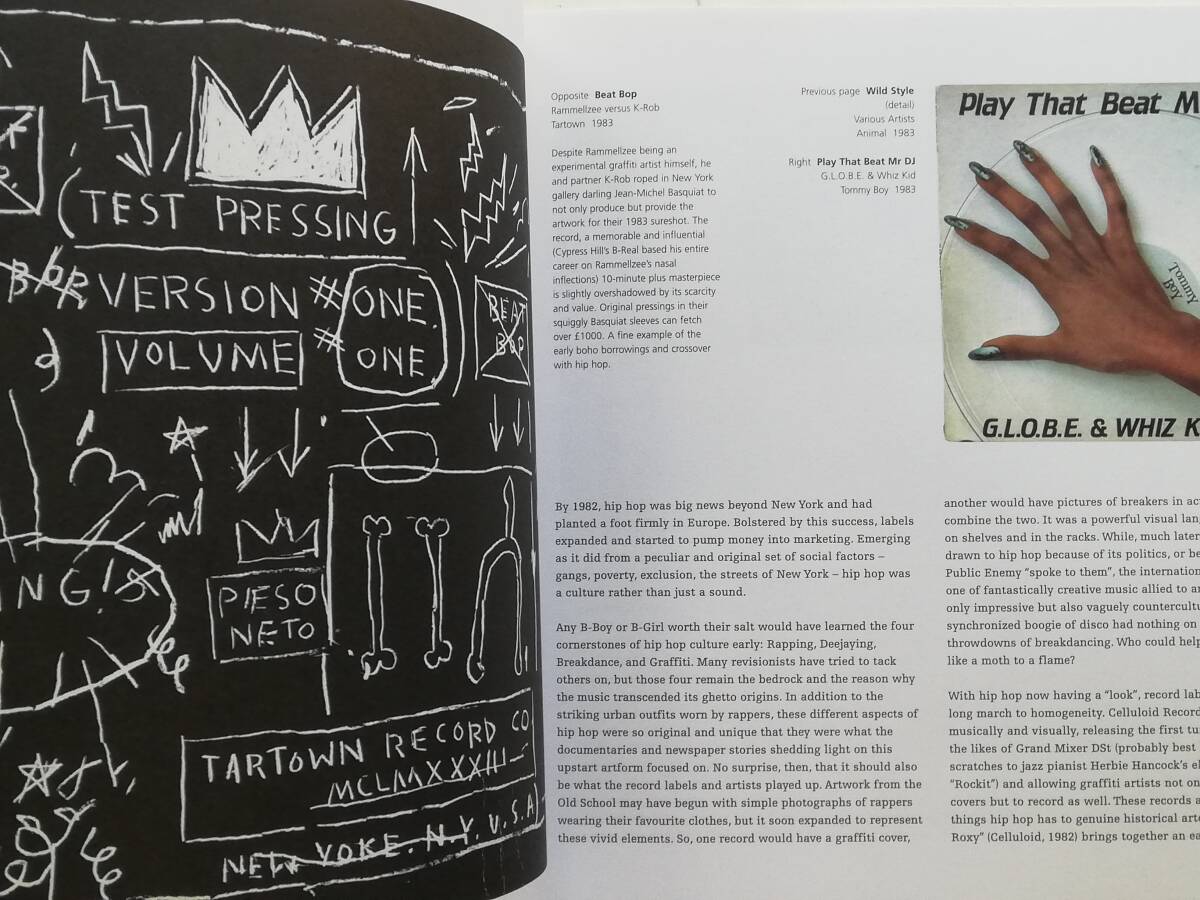 TEST PRESSING
VERSION # ONE.
VOLUME # ONE
BEAT
BOP
PIESO
NETO
NG!
TARTOWN RECORD CO
MCLMXXXIII
NEW YOKE. N.Y. U.S.A
Opposite Beat Bop
Rammellzee versus K-Rob
Tartown 1983
Despite Rammellzee being an
experimental graffiti artist himself, he
and partner K-Rob roped in New York
gallery darling Jean-Michel Basquiat to
not only produce but provide the
artwork for their 1983 sureshot. The
record, a memorable and influential
(Cypress Hill's B-Real based his entire
career on Rammellzee's nasal
inflections) 10-minute plus masterpiece
is slightly overshadowed by its scarcity
and value. Original pressings in their
squiggly Basquiat sleeves can fetch
over £1000. A fine example of the
early boho borrowings and crossover
with hip hop.
Previous page Wild Style
(detail)
Various Artists
Animal 1983
Right Play That Beat Mr DJ
G.L.O.B.E. & Whiz Kid
Tommy Boy 1983
Play That Beat M
Tommy
Boy
G.L.O.B.E. & WHIZ K
By 1982, hip hop was big news beyond New York and had
planted a foot firmly in Europe. Bolstered by this success, labels
expanded and started to pump money into marketing. Emerging
as it did from a peculiar and original set of social factors –
gangs, poverty, exclusion, the streets of New York – hip hop was
a culture rather than just a sound.
Any B-Boy or B-Girl worth their salt would have learned the four
cornerstones of hip hop culture early: Rapping, Deejaying,
Breakdance, and Graffiti. Many revisionists have tried to tack
others on, but those four remain the bedrock and the reason why
the music transcended its ghetto origins. In addition to the
striking urban outfits worn by rappers, these different aspects of
hip hop were so original and unique that they were what the
documentaries and newspaper stories shedding light on this
upstart artform focused on. No surprise, then, that it should also
be what the record labels and artists played up. Artwork from the
Old School may have begun with simple photographs of rappers
wearing their favourite clothes, but it soon expanded to represent
these vivid elements. So, one record would have a graffiti cover,
another would have pictures of breakers in ac
combine the two. It was a powerful visual lan
on shelves and in the racks. While, much later
drawn to hip hop because of its politics, or be
Public Enemy “spoke to them”, the internation
one of fantastically creative music allied to a
only impressive but also vaguely countercult
synchronized boogie of disco had nothing on
throwdowns of breakdancing. Who could help
like a moth to a flame?
With hip hop now having a “look”, record lab
long march to homogeneity. Celluloid Record
musically and visually, releasing the first tu
the likes of Grand Mixer DSt (probably best
scratches to jazz pianist Herbie Hancock's el
“Rockit”) and allowing graffiti artists not on
covers but to record as well. These records a
things hip hop has to genuine historical arte
Roxy” (Celluloid, 1982) brings together an ea